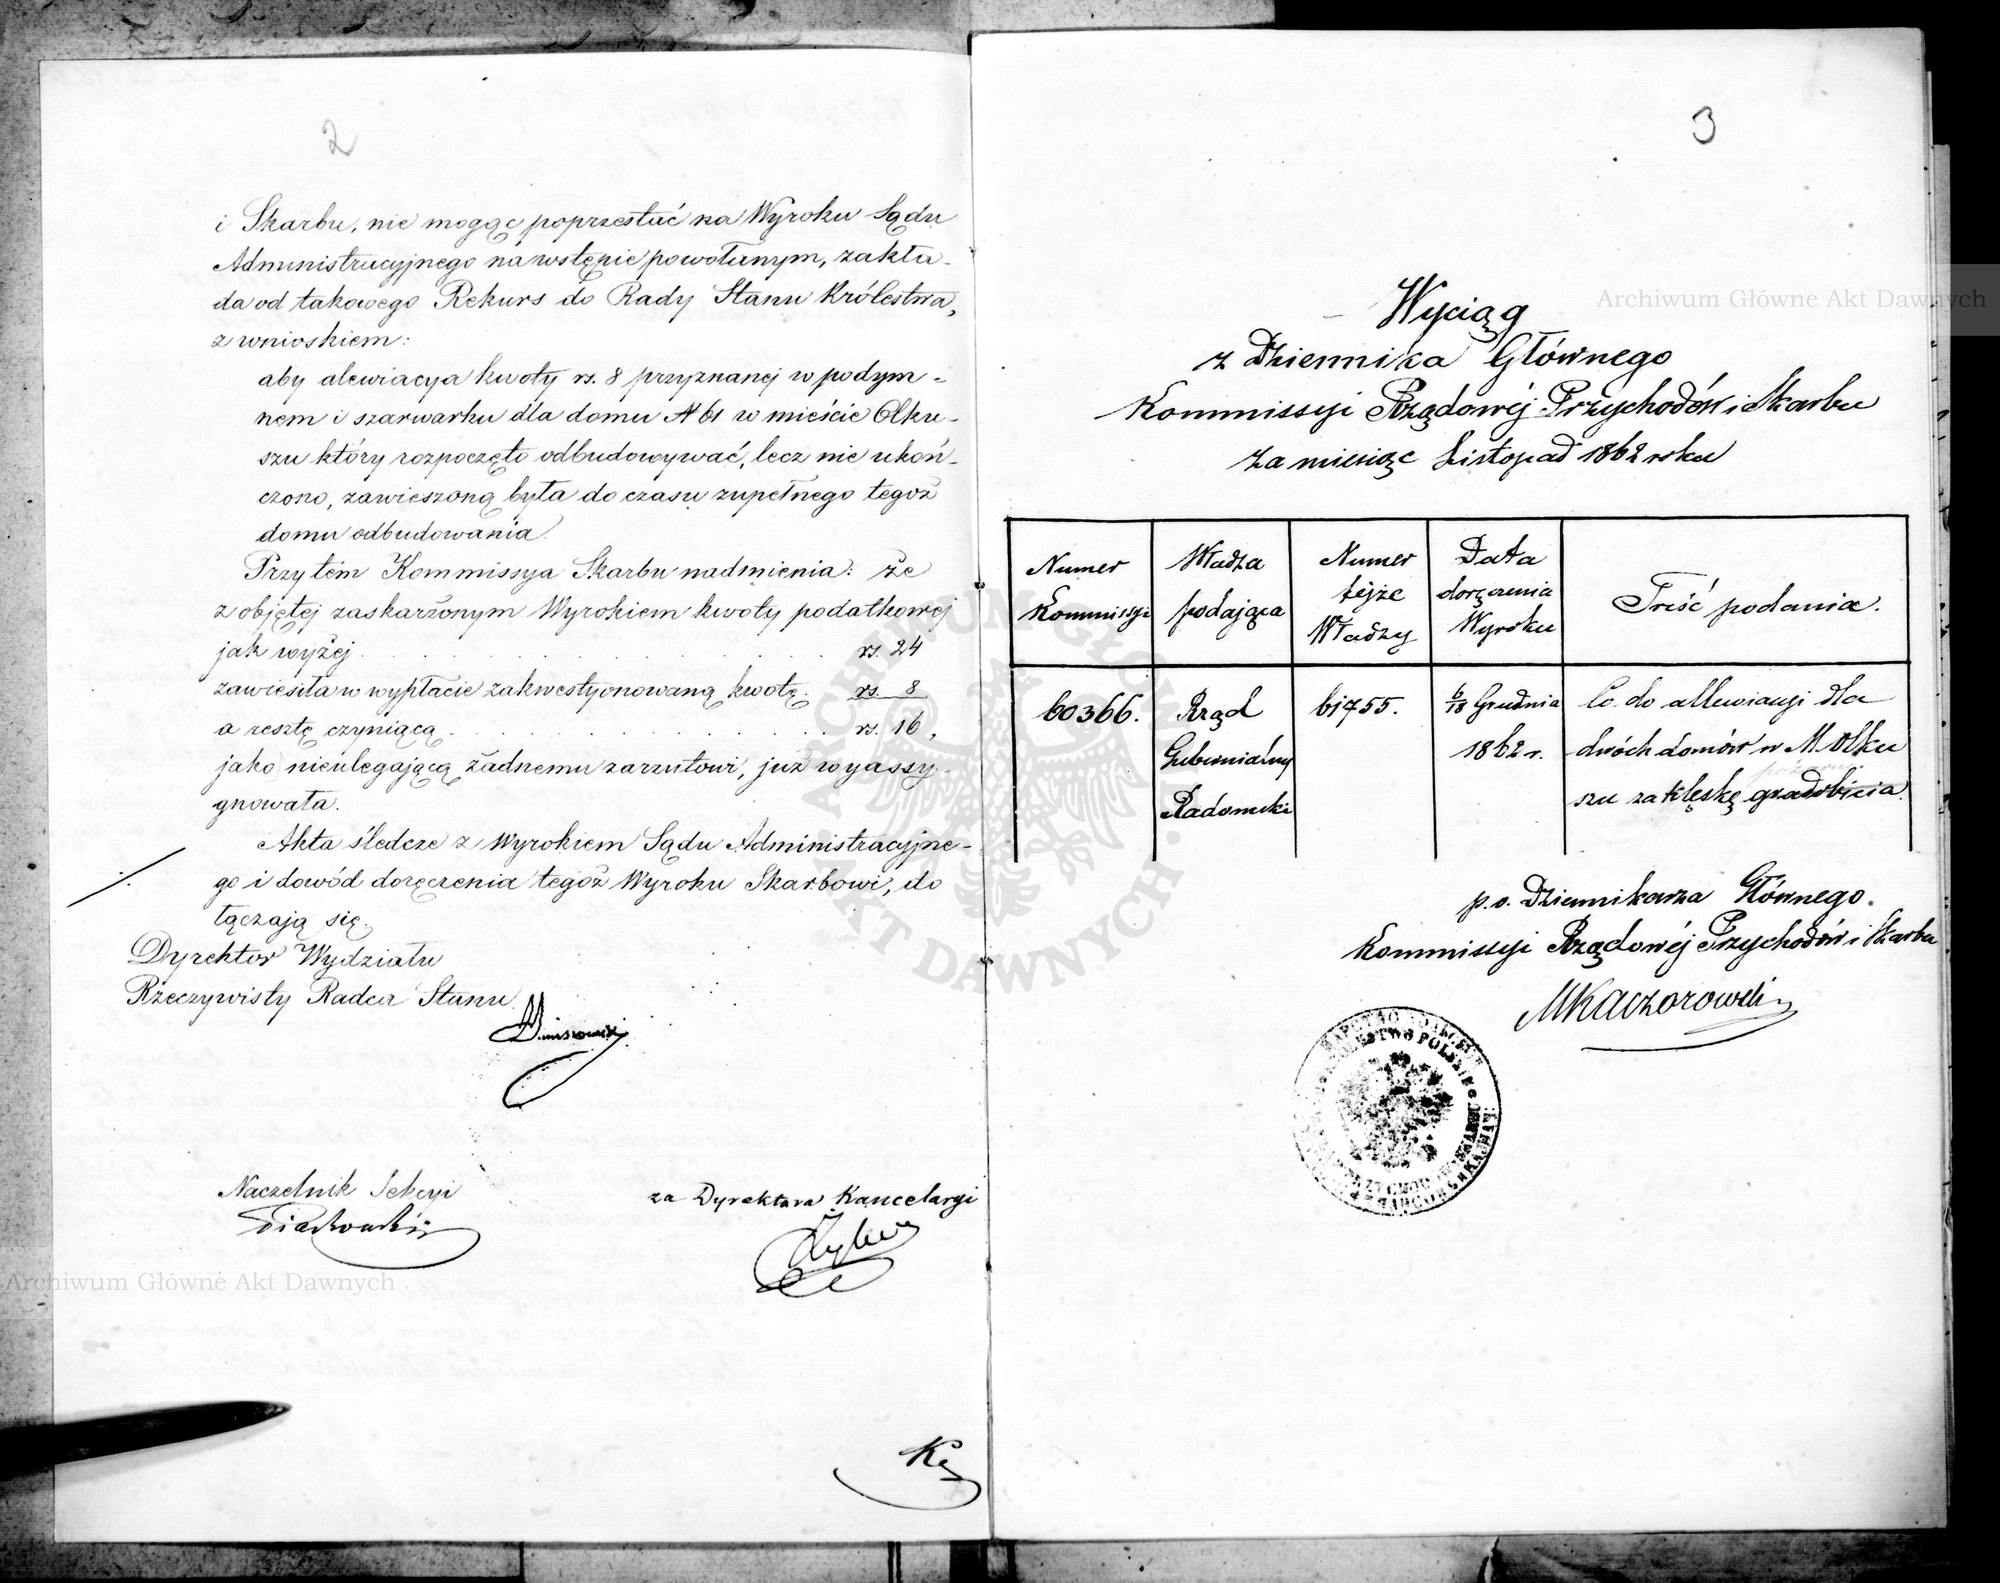 2
i Skarbu, nie mogąc poprzestać na Wyroku Sądu
Administracyjnego na wstępie powołanym, zakła-
da od takowego Rekurs do Rady Stanu Królestwa,
z wnioskiem:
aby alewiacya kwoty rs. 8 przyznanej w podym-
nem i szarwarku dla domu N 61 w mieście Olku-
szu który rozpoczęto odbudowywać, lecz nie ukoń-
czono, zawieszoną była do czasu zupełnego tegoż
domu odbudowania.
Przytém Kommissya Skarbu nadmienia: że
z objętej zaskarżonym Wyrokiem kwoty podatkowej
jak wyżej . . . . . . . . . . rs. 24
zawiesiła w wypłacie zakwestyonowaną kwotę. rs. 8
a resztę czyniącą . . . . . . . . . . rs. 16,
jako nieulegającą żadnemu zarzutowi, już wyassy-
gnowała.
Akta śledcze z Wyrokiem Sądu Administracyjne-
go i dowód doręczenia tegoż Wyroku Skarbowi, do
łączają się.
Dyrektor Wydziału
Rzeczywisty Radca Stanu
Naczelnik Sekcyi
Piastowski
za Dyrektora Kancelaryi
Archiwum Główne Akt Dawnych
3
Wyciąg
z Dziennika Głównego
Kommissyi Rządowéj Przychodów i Skarbu
za miesiąc Listopad 1862 roku
Numer Kommissyi
Władza podająca
Numer téjże Władzy
Data doręczenia Wyroku
Treść podania.
60366.
Rząd Gubernialny Radomski
61755.
6/18 Grudnia 1862 r.
Co do allewiacyi dla
dwóch domów w M. Olku
szu za klęskę gradobicia.
pożaru
p.o. Dziennikarza Głównego.
Kommissyi Rządowéj Przychodów i Skarbu
MKaczorowski
Archiwum Główne Akt Dawnych
ARCHIWUM GŁÓWNE AKT DAWNYCH